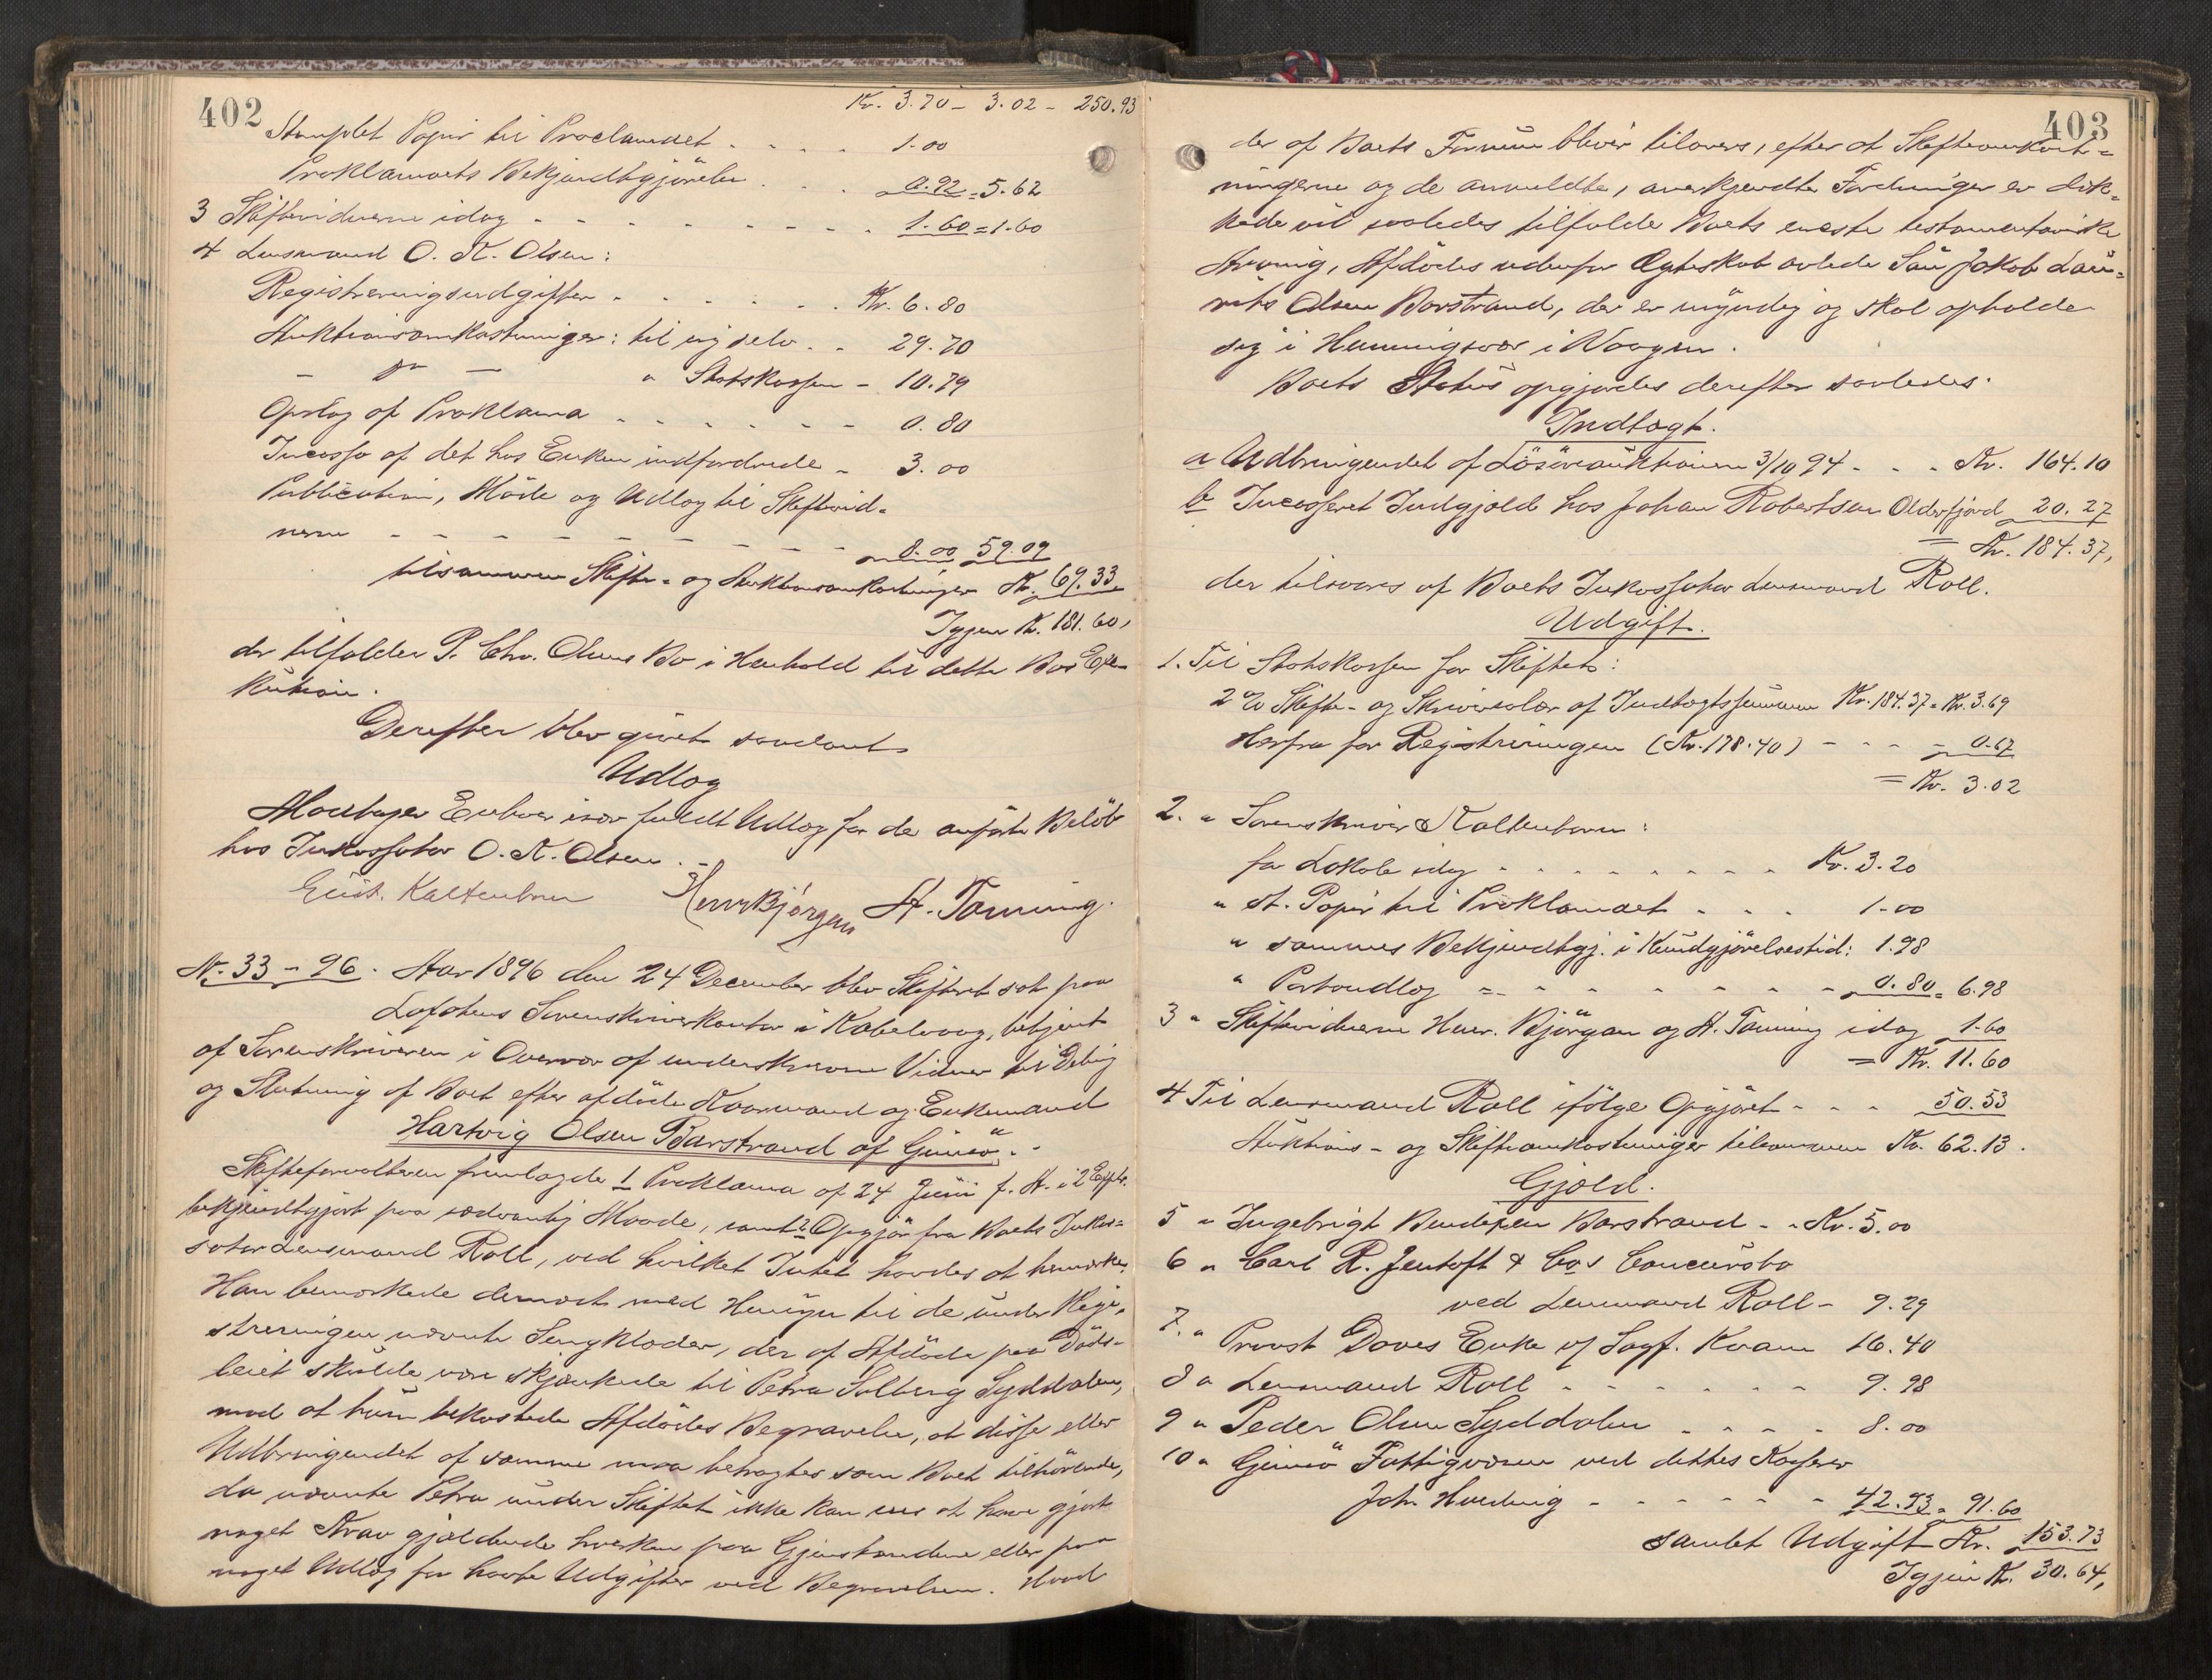 402
Kr. 3.70 - 3.02 - 250.93
Stemplet Papir til Proclamaet - - - - 1.00
Proklamaets Bekjendtgjörelse - - - 0.92 = 5.62
3 Skiftevidnerne idag - - - - - - - - 1.60 = 1.60
4 Lensmand O. K. Olsen:
Registreringsudgifter - - - - - Kr. 6.80
Auktionsomkostninger: til sig selv - - 29.70
- do - " Statskassen - 10.79
Opslag af Proklama - - - - - - 0.80
Incasso af det hos Enken indfordrede - 3.00
Publication, Möde og Udlæg til Skiftevid-
nerne - - - - - - - - - 8.00 59.09
tilsammen Skifte- og Auktionsomkostninger Kr. 69.33
Igjen Kr. 181.60,
der tilfalder P. Chr. Olsens Bo i Henhold til dette Bos Exe-
kution.
Derefter blev givet saadant
Udlæg
Modtager Enhver især fuldt Udlæg for de anførte Beløb
hos Inkassator O. K. Olsen. -
Eist. Kaltenborn Henr Bjørgan A. Tanning.
N. 33 - 96. Aar 1896 den 24 December blev Skifteret sat paa
Lofotens Sorenskriverkontor i Kabelvaag, betjent
af Sorenskriveren i Overvær af underskrevne Vidner til Deling
og Slutning af Boet efter afdöde Kaarmand og Enkemand
Hartvig Olsen Barstrand af Gimsö. -
Skifteforvalteren fremlagde 1 Proklama af 24 Juni f. A. i 2 Expl.
bekjendtgjort paa sædvanlig Maade, samt 2 Opgjör fra Boets Inkas-
sator Lensmand Roll, ved hvilket Intet havdes at bemærke.
Han bemærkede dernæst med Hensyn til de under Regi-
streringen nævnte Sengklæder, der af Afdöde paa Döds-
leiet skulde være skjænkede til Petra Solberg Syddalen,
mod at hun bekostede Afdödes Begravelse, at disse eller
Udbringendet af samme maa betragtes som Boet tilhörende,
da nævnte Petra under Skiftet ikke kan sees at have gjort
noget Krav gjældende hverken paa Gjenstandene eller paa
noget Udlæg for havte Udgifter ved Begravelsen. Hvad
403
der af Boets Formue bliver tilovers, efter at Skifteomkost-
ningerne og de anmeldte, anerkjendte Fordringer er dæk-
kede vil saaledes tilfalde Boets eneste testamentariske
Arving, Afdödes udenfor Ægteskab avlede Sön Jakob Lau-
rits Olsen Barstrand, der er myndig og skal opholde
sig i Henningsvær i Vaagen.
Boets Status opgjordes derefter saaledes:
Indtægt.
a Udbringendet af Lösöreauktionen 3/10 94 - - - Kr. 164.10
b Incasseret Indgjæld hos Johan Robertsen Olderfjord 20.27
= Kr. 184.37,
der tilsvares af Boets Inkassator Lensmand Roll.
Udgift.
1. Til Statskassen for Skiftet:
2 % Skifte- og Skriversalær af Indtægtssummen Kr. 184.37 = Kr. 3.69
Herfra for Registreringen (Kr. 178.40) - - - - 0.67
= Kr. 3.02
2. " Sorenskriver Kaltenborn:
for Lokale idag - - - - - - - - Kr. 3.20
" st. Papir til Proklamaet - - - 1.00
" sammes Bekjendtgj. i Kundgjörelsestid: 1.98
" Portoudlæg - - - - - - - - 0.80 = 6.98
3 " Skiftevidnerne Henr. Björgan og A. Tanning idag 1.60
= Kr. 11.60
4 Til Lensmand Roll ifölge Opgjöret - - - 50.53
Auktions- og Skifteomkostninger tilsammen Kr. 62.13.
Gjæld.
5 " Ingebrigt Bendixen Barstrand - " Kr. 5.00
6 " Carl R. Jentoft & Cos Concursbo
ved Lensmand Roll - 9.29
7. " Provst Daves Enke v/ Sagf. Kvam 16.40
8 " Lensmand Roll - - - - - - 9.98
9 " Peder Olsen Syddalen - - - - 8.00
10 " Gimsö Fattigvæsen ved dettes Kasserer
Joh. Hveding - - - - - - 42.93 = 91.60
samlet Udgift Kr. 153.73
Igjen Kr. 30.64,